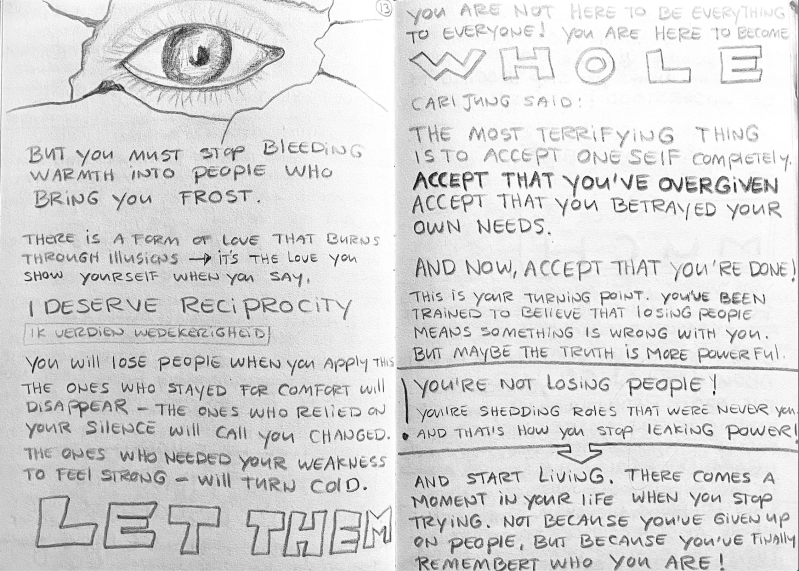 13
BUT YOU MUST STOP BLEEDING
WARMTH INTO PEOPLE WHO
BRING YOU FROST.
THERE IS A FORM OF LOVE THAT BURNS
THROUGH ILLUSIONS → IT'S THE LOVE YOU
SHOW YOURSELF WHEN YOU SAY,
I DESERVE RECIPROCITY
IK VERDIEN WEDEKERIGHEID
YOU WILL LOSE PEOPLE WHEN YOU APPLY THIS
THE ONES WHO STAYED FOR COMFORT WILL
DISAPPEAR – THE ONES WHO RELIED ON
YOUR SILENCE WILL CALL YOU CHANGED.
THE ONES WHO NEEDED YOUR WEAKNESS
TO FEEL STRONG – WILL TURN COLD.
LET THEM
YOU ARE NOT HERE TO BE EVERYTHING
TO EVERYONE! YOU ARE HERE TO BECOME
WHOLE
CARL JUNG SAID:
THE MOST TERRIFYING THING
IS TO ACCEPT ONE SELF COMPLETELY.
ACCEPT THAT YOU'VE OVERGIVEN
ACCEPT THAT YOU BETRAYED YOUR
OWN NEEDS.
AND NOW, ACCEPT THAT YOU'RE DONE!
THIS IS YOUR TURNING POINT. YOU'VE BEEN
TRAINED TO BELIEVE THAT LOSING PEOPLE
MEANS SOMETHING IS WRONG WITH YOU.
BUT MAYBE THE TRUTH IS MORE POWERFUL.
! YOU'RE NOT LOSING PEOPLE!
YOU'RE SHEDDING ROLES THAT WERE NEVER YOU.
AND THAT'S HOW YOU STOP LEAKING POWER!
AND START LIVING. THERE COMES A
MOMENT IN YOUR LIFE WHEN YOU STOP
TRYING. NOT BECAUSE YOU'VE GIVEN UP
ON PEOPLE, BUT BECAUSE YOU'VE FINALLY
REMEMBERT WHO YOU ARE!